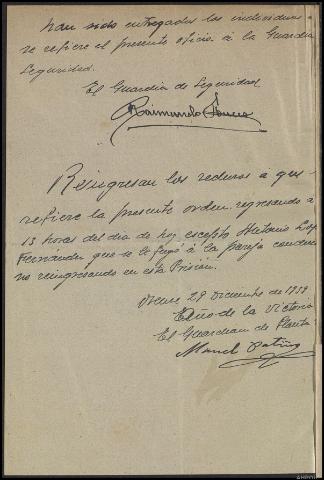 han sido entregados los individuos a
se refiere el presente oficio á la Guardia
Seguridad.
El Guardia de Seguridad
Raimundo
Reingresan los reclusos á que
refiere la presente orden, regresando á
13 horas del dia de hoy escepto
Fernandez que se le fugó á la pareja
no reingresando en esta Prisión.
Orense 29 Diciembre de 1939
Año de la Victoria
El Guardian de
Manuel Patiño